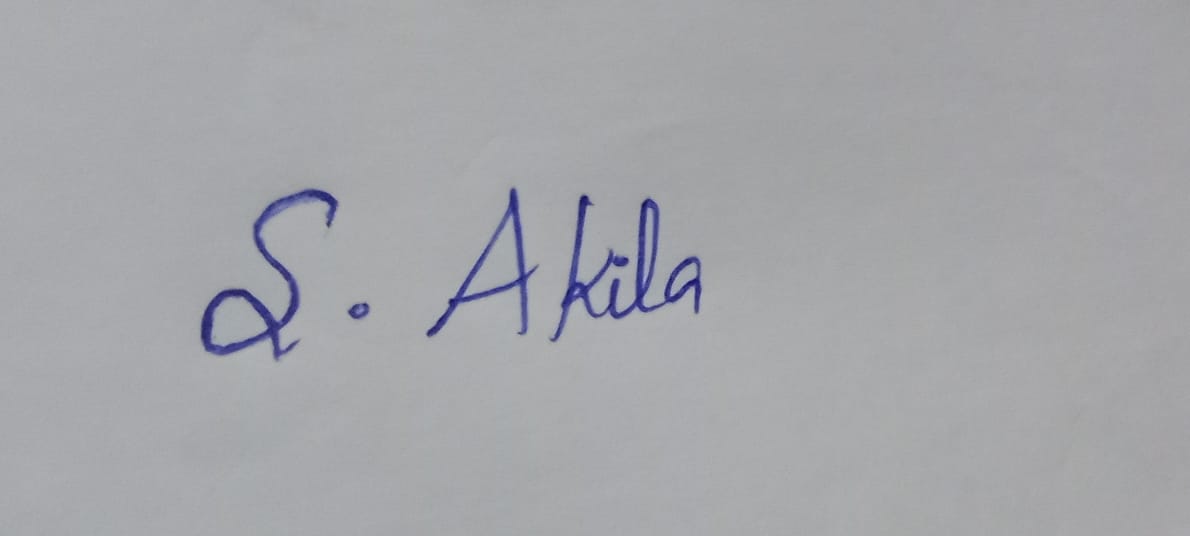 S. Akila